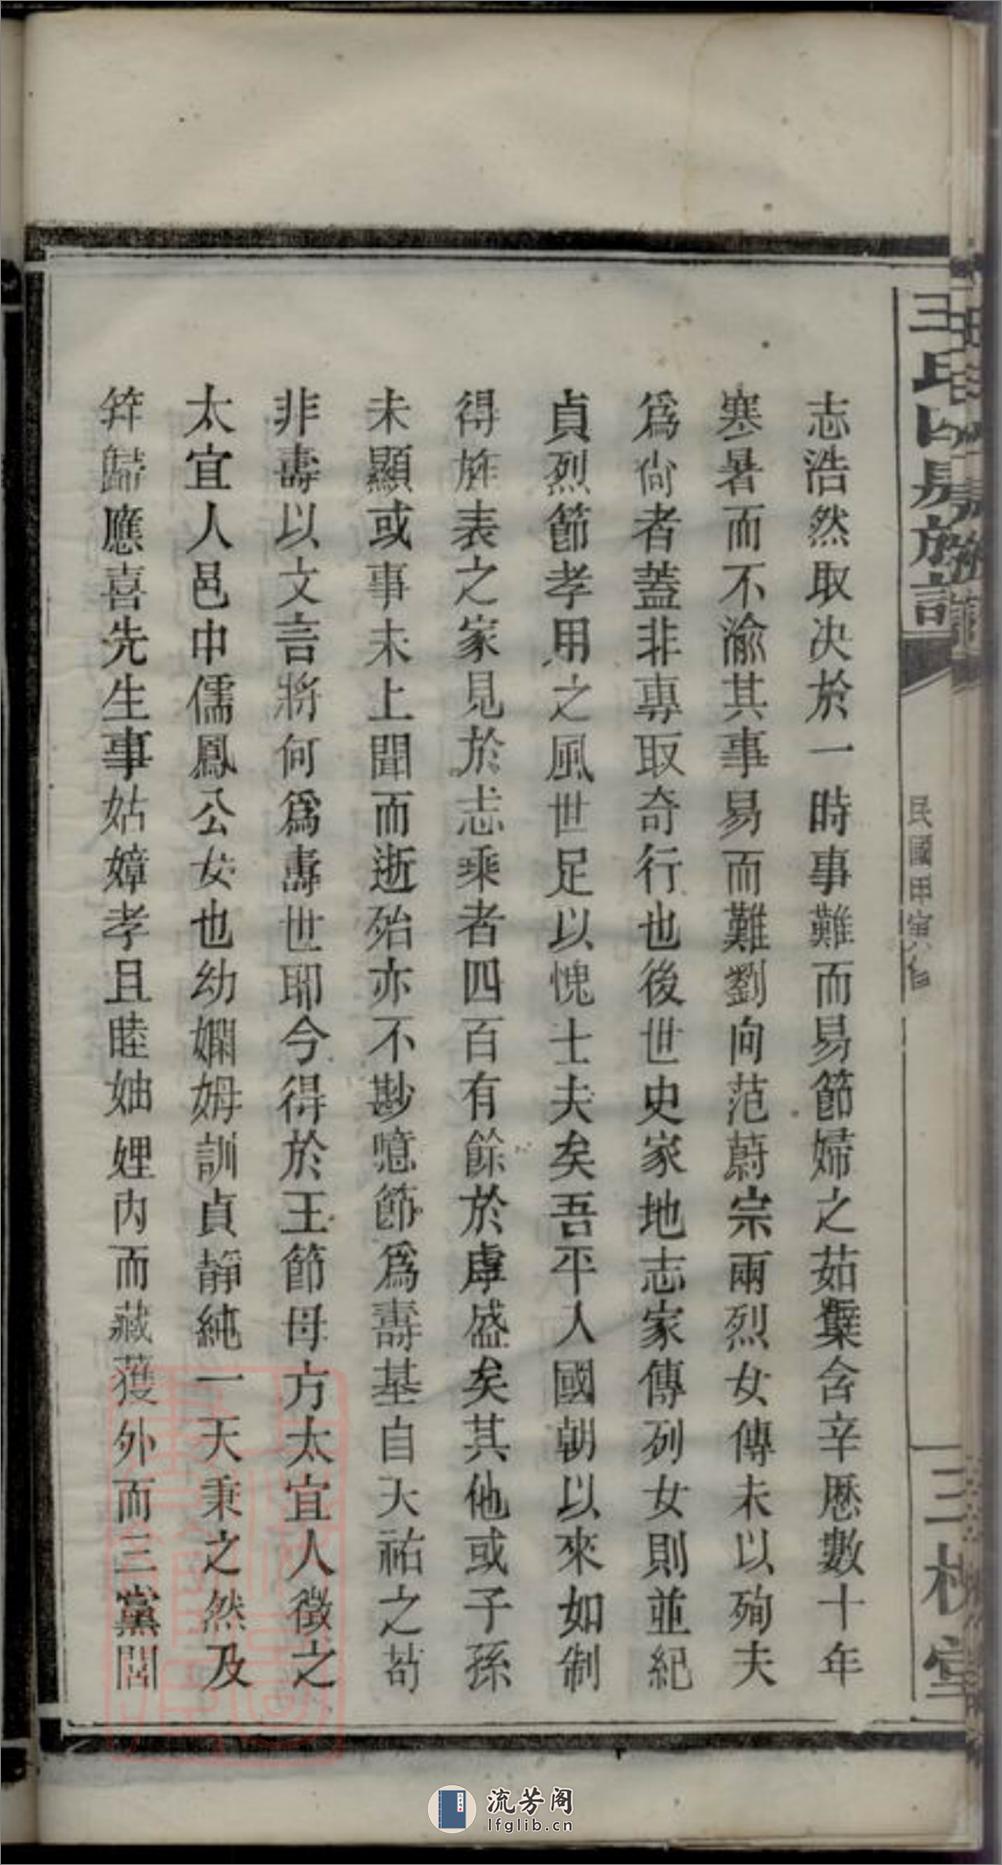 志浩然取决於一時事難而易節婦之茹櫱含辛歷數十年
寒暑而不渝其事易而難劉向范蔚宗兩烈女傳未以殉夫
爲尙者蓋非專取奇行也後世史家地志家傳列女則並紀
貞烈節孝用之風世足以愧士夫矣吾平入國朝以來如制
得旌表之家見於志乘者四百有餘於虖盛矣其他或子孫
未顯或事未上聞而逝殆亦不尠噫節爲壽基自天祐之苟
非壽以文言將何爲壽世耶今得於王節母方太宜人徵之
太宜人邑中儒鳳公女也幼嫻姆訓貞靜純一天秉之然及
笄歸應喜先生事姑嫜孝且睦妯娌內而藏獲外而三黨閭
王氏四房族譜
民國甲寅
三槐堂
流芳阁
lfglib.cn